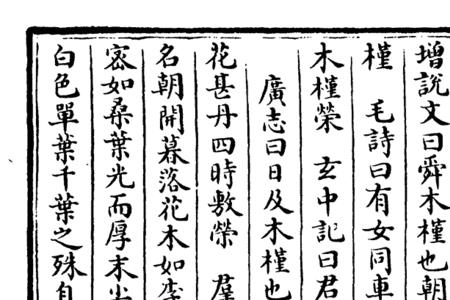 增說文曰舜木槿也朝
槿 毛詩曰有女同車
木槿榮 玄中記曰君
廣志曰日及木槿也
花甚丹四時敷榮 羣
名朝開暮落花木如李
宻如桑葉光而厚末尖
白色單葉千葉之殊自